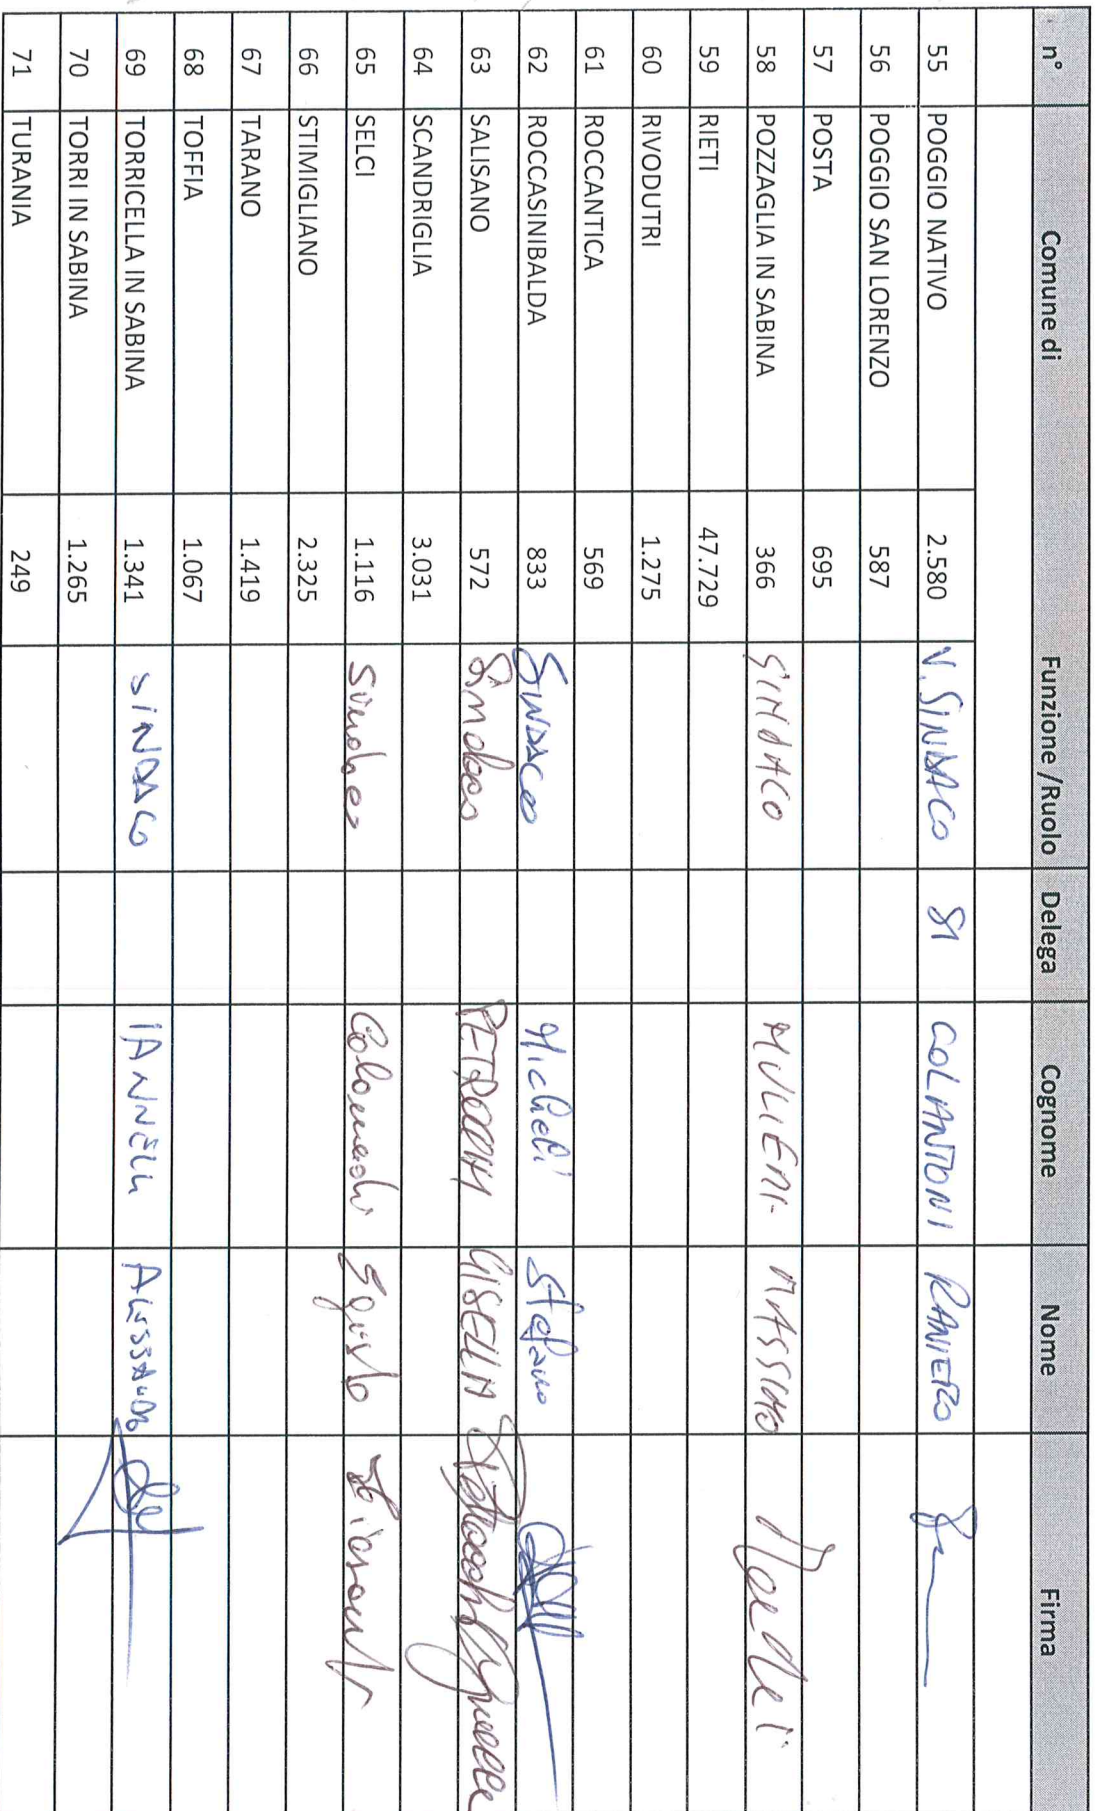 n° Comune di Funzione /Ruolo Delega Cognome Nome Firma
55 POGGIO NATIVO 2.580 V. SINDACO SI COLANTONI RANIERO
56 POGGIO SAN LORENZO 587
57 POSTA 695
58 POZZAGLIA IN SABINA 366 SINDACO MULIERI MASSIMO
59 RIETI 47.729
60 RIVODUTRI 1.275
61 ROCCANTICA 569
62 ROCCASINIBALDA 833 SINDACO Micheli Stefano
63 SALISANO 572 Sindaco PETROCCHI GISELLA
64 SCANDRIGLIA 3.031
65 SELCI 1.116 Sindaco Egisto
66 STIMIGLIANO 2.325
67 TARANO 1.419
68 TOFFIA 1.067
69 TORRICELLA IN SABINA 1.341 SINDACO IANNELLI ALESSANDRO
70 TORRI IN SABINA 1.265
71 TURANIA 249